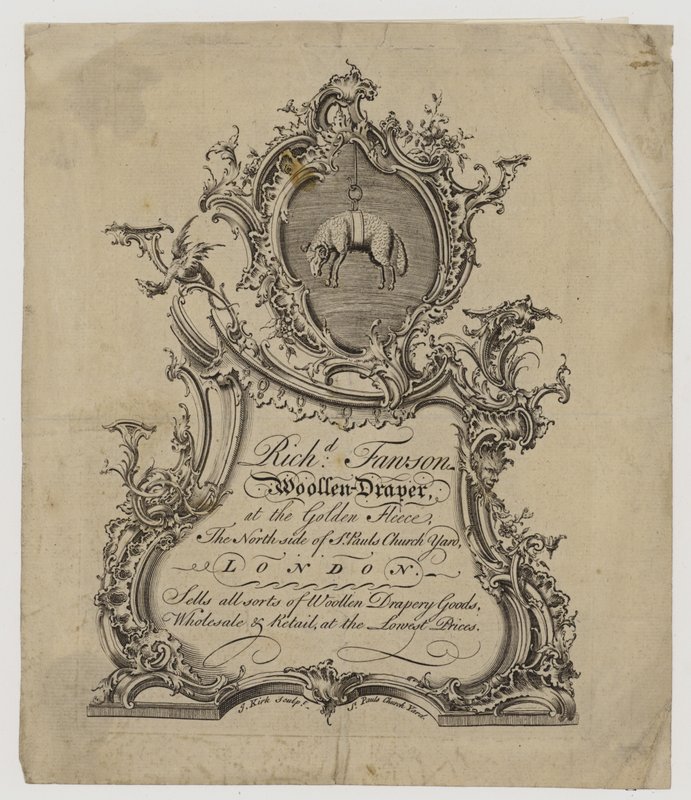 Richd. Fawson
Woollen-Draper,
at the Golden Fleece,
The North side of St. Pauls Church Yard,
LONDON.
Sells all sorts of Woollen Drapery Goods,
Wholesale & Retail, at the Lowest Prices.
J. Kirk Sculpt. St. Pauls Church Yard.